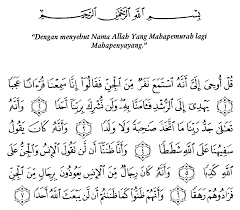 بِسْمِ اللَّهِ الرَّحْمَٰنِ الرَّحِيمِ
"Dengan menyebut Nama Allah Yang Mahapemurah lagi
Mahapenyayang."
قُلْ أُوحِيَ إِلَيَّ أَنَّهُ ٱسْتَمَعَ نَفَرٌ مِّنَ ٱلْجِنِّ فَقَالُوٓا۟ إِنَّا سَمِعْنَا قُرْءَانًا عَجَبًا
﴿١﴾ يَهْدِىٓ إِلَى ٱلرُّشْدِ فَـَٔامَنَّا بِهِۦ وَلَن نُّشْرِكَ بِرَبِّنَآ أَحَدًا ﴿٢﴾ وَأَنَّهُۥ
تَعَٰلَىٰ جَدُّ رَبِّنَا مَا ٱتَّخَذَ صَٰحِبَةً وَلَا وَلَدًا ﴿٣﴾ وَأَنَّهُۥ كَانَ يَقُولُ
سَفِيهُنَا عَلَى ٱللَّهِ شَطَطًا ﴿٤﴾ وَأَنَّا ظَنَنَّآ أَن لَّن تَقُولَ ٱلْإِنسُ وَٱلْجِنُّ عَلَى
ٱللَّهِ كَذِبًا ﴿٥﴾ وَأَنَّهُۥ كَانَ رِجَالٌ مِّنَ ٱلْإِنسِ يَعُوذُونَ بِرِجَالٍ مِّنَ ٱلْجِنِّ
فَزَادُوهُمْ رَهَقًا ﴿٦﴾ وَأَنَّهُمْ ظَنُّوا۟ كَمَا ظَنَنتُمْ أَن لَّن يَبْعَثَ ٱللَّهُ أَحَدًا ﴿٧﴾